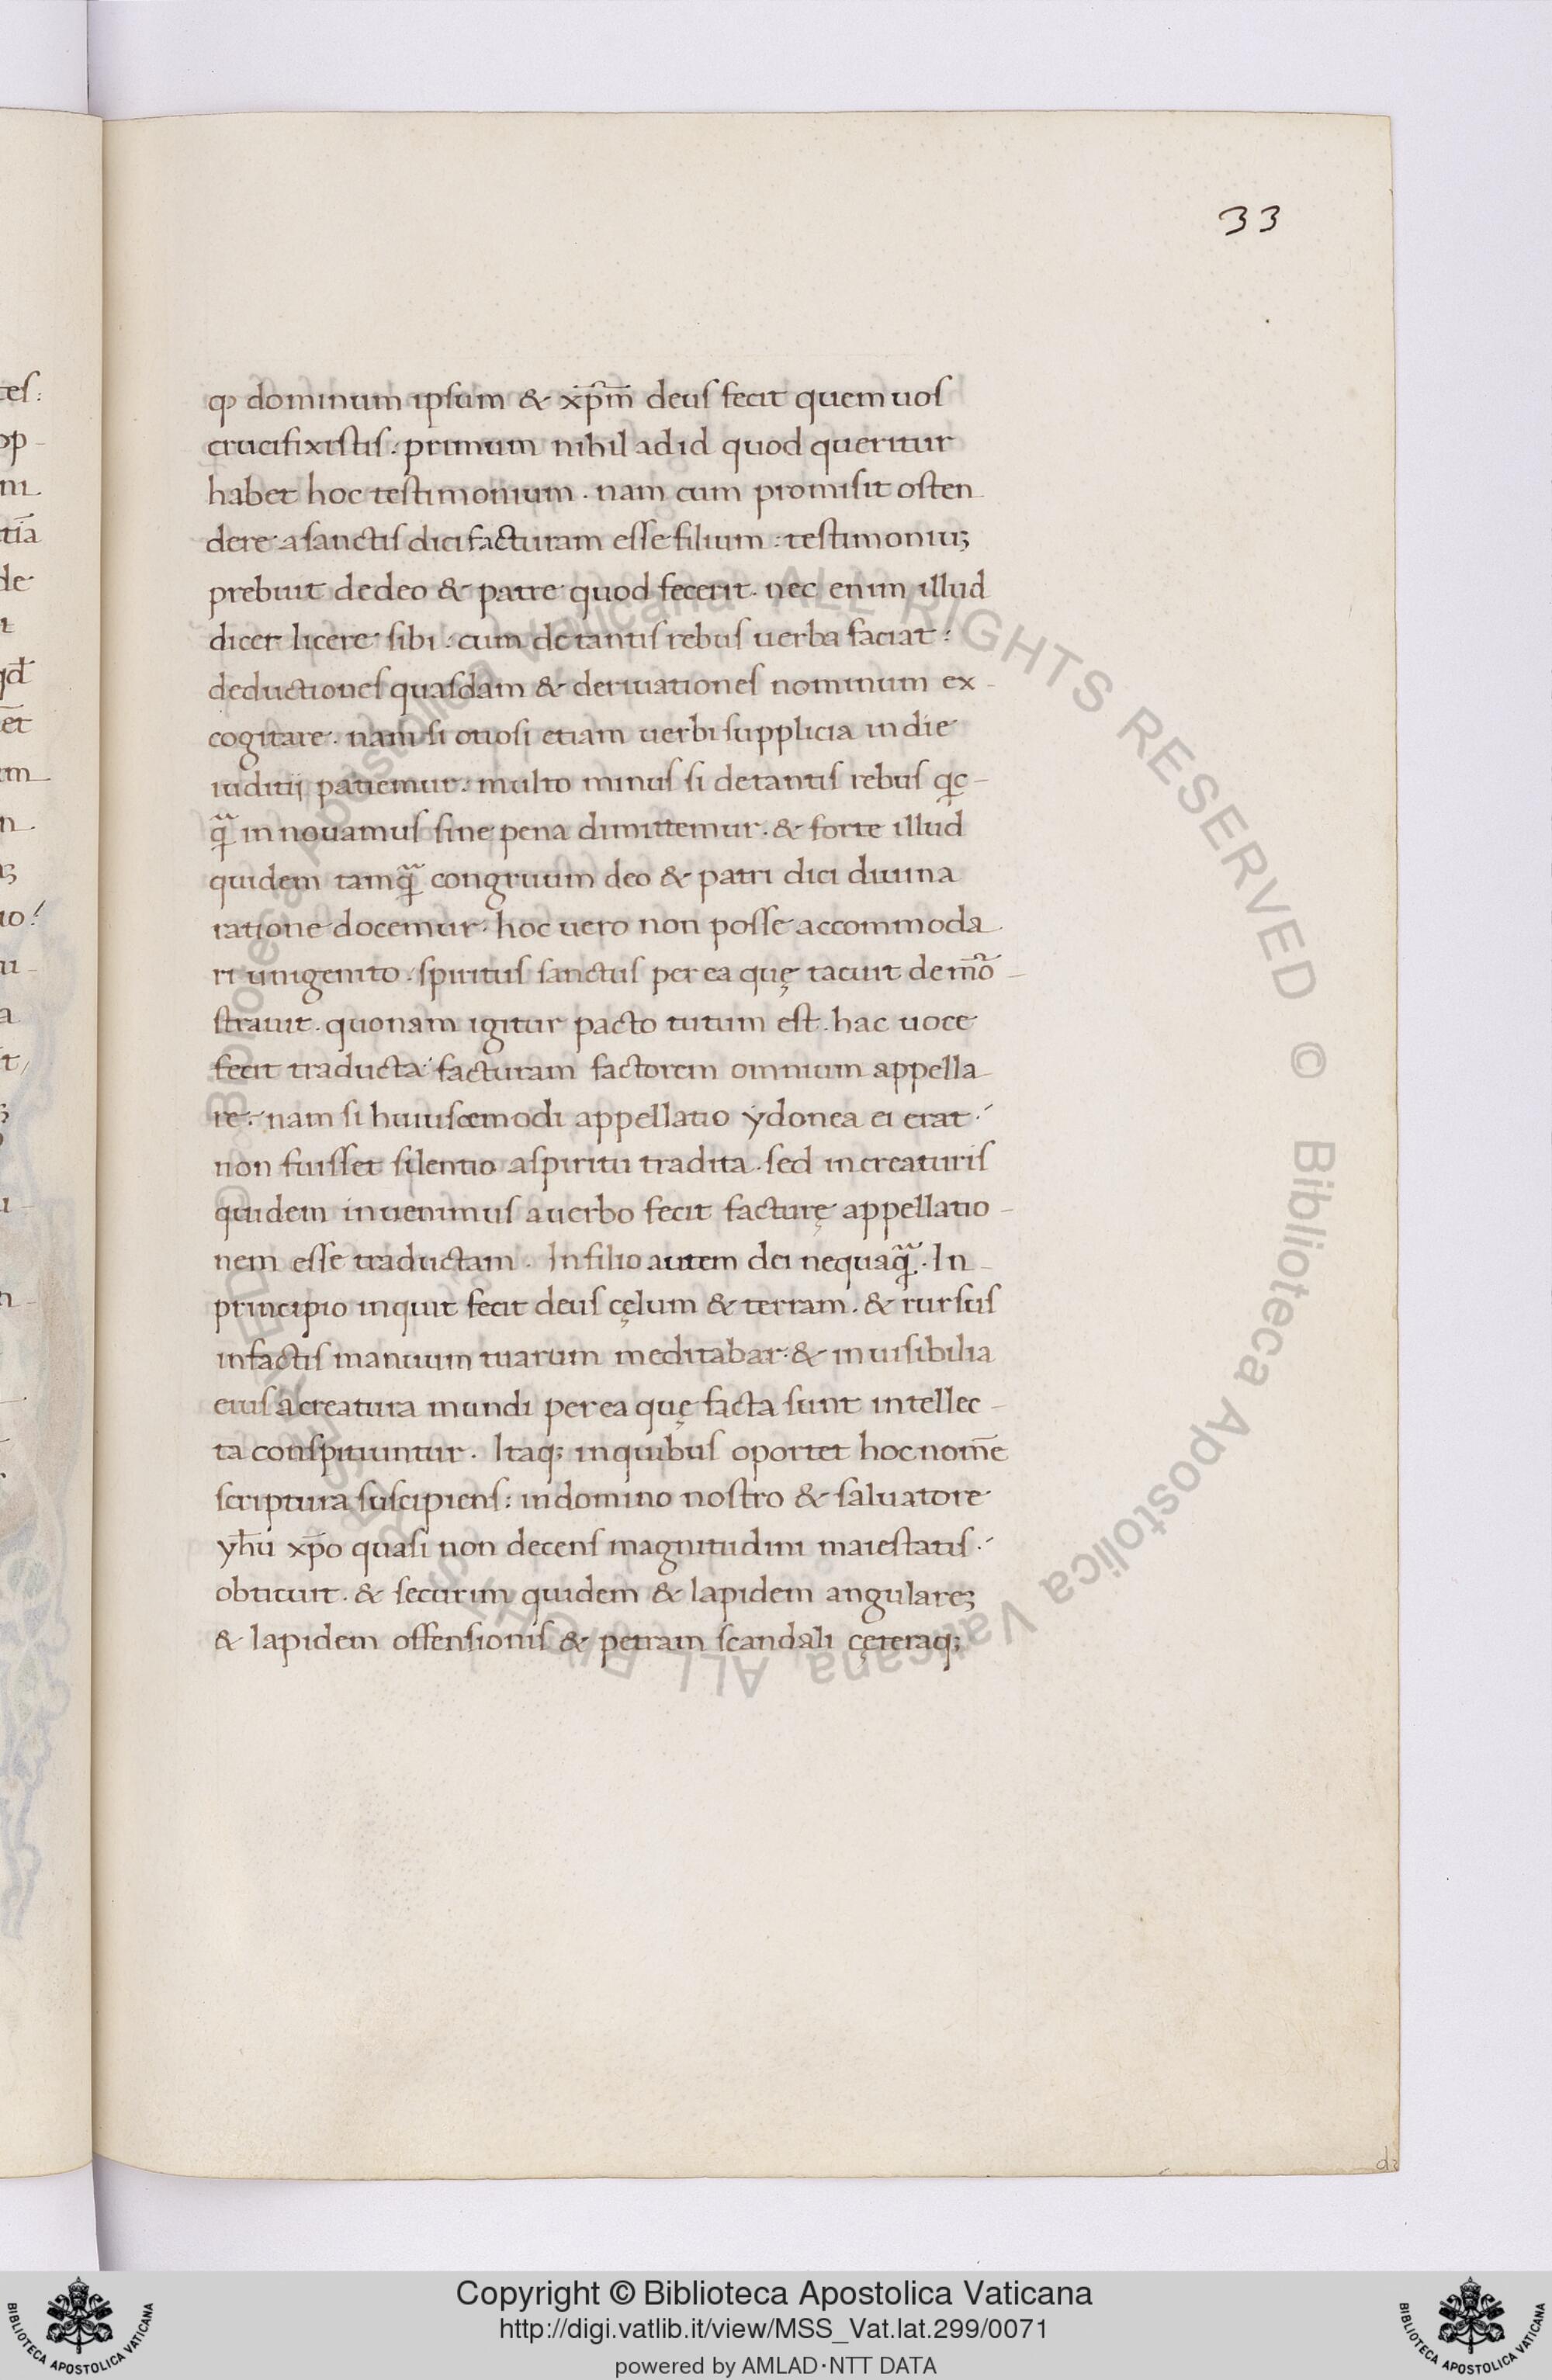 33
ꝙ dominum ipsum & xp̄m̄ deus fecit quem uos
crucifixistis. primum nihil ad id quod queritur
habet hoc testimonium. nam cum promisit osten
dere a sanctis dici facturam esse filium: testimoniuꝫ
prebuit de deo & patre quod fecerit. nec enim illud
dicet licere sibi: cum de tantis rebus uerba faciat:
deductiones quasdam & deriuationes nominum ex-
cogitare. nam si otiosi etiam uerbi supplicia in die
iuditij patiemur: multo minus si de tantis rebus qc-
q̃ in nouamus sine pena dimittemur. & forte illud
quidem tamq̃ congruum deo & patri dici diuina
ratione docemur. hoc uero non posse accommoda
ri unigenito. spiritus sanctus per ea quę tacuit demo̅-
strauit. quonam igitur pacto tutum est. hac uoce
fecit traducta facturam factorem omnium appella
re. nam si huiuscemodi appellatio ydonea ei erat:
non fuisset silentio a spiritu tradita. sed in creaturis
quidem inuenimus a uerbo fecit facturę appellatio-
nem esse traductam. In filio autem dei nequaq̃. In
principio inquit fecit deus cęlum & terram. & rursus
in factis manuum tuarum meditabar: & inuisibilia
eius a creatura mundi per ea quę facta sunt intellec-
ta conspitiuntur. Itaq; in quibus oportet hoc nom̄e
scriptura suscipiens: in domino nostro & saluatore
yh̄u xp̄o quasi non decens magnitudini maiestatis:
obticuit. & securim quidem & lapidem angulareꝫ
& lapidem offensionis & petram scandali cęteraq;
Copyright © Biblioteca Apostolica Vaticana
http://digi.vatlib.it/view/MSS_Vat.lat.299/0071
powered by AMLAD·NTT DATA